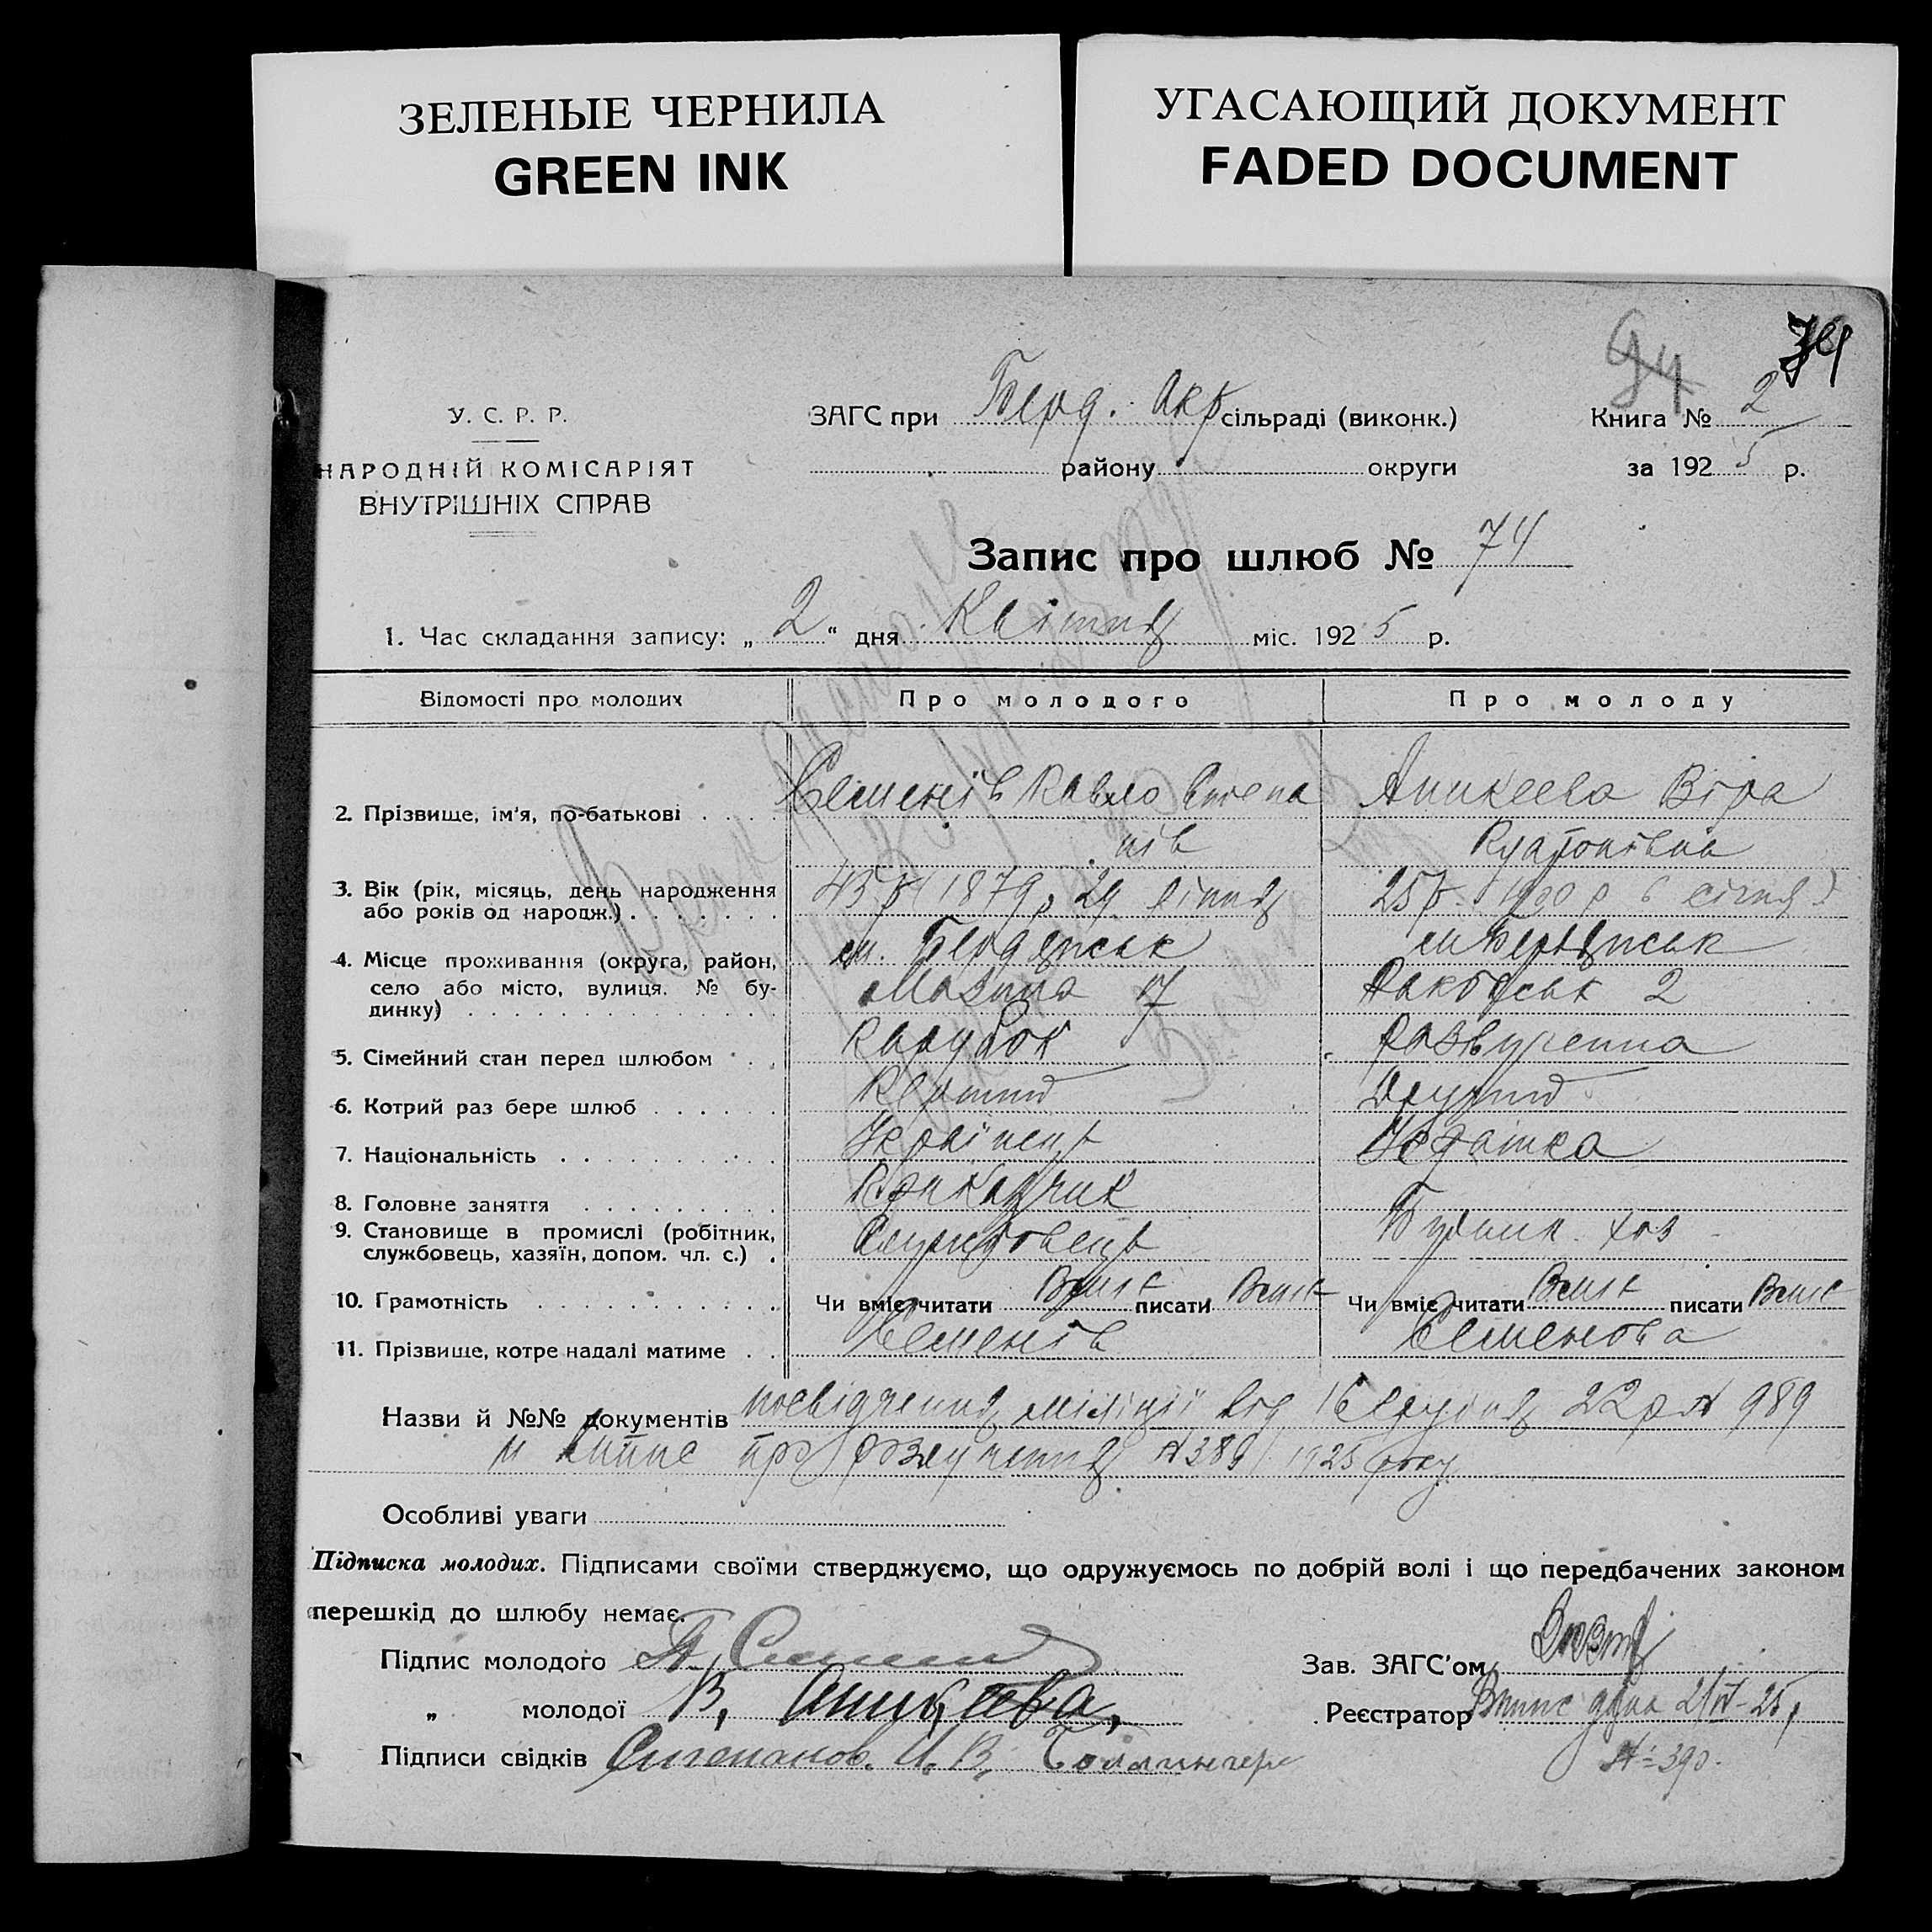 ЗЕЛЕНЫЕ ЧЕРНИЛА
GREEN INK
УГАСАЮЩИЙ ДОКУМЕНТ
FADED DOCUMENT
94 74
У. С. Р. Р.
НАРОДНІЙ КОМІСАРІЯТ
ВНУТРІШНІХ СПРАВ
ЗАГС при Берд. Окр сільраді (виконк.)
району округи
Книга № 2
за 1925 р.
Запис про шлюб № 74
1. Час складання запису: „ 2 “ дня Квітня міс. 1925 р.
Відомості про молодих Про молодого Про молоду
2. Прізвище, ім'я, по-батькові Семенів Павло Степа Аникеева Віра
нів
3. Вік (рік, місяць, день народження 45 р (1879 р 29 липня 25 р. 1900 р 6 січня)
або років од народж.)
4. Місце проживання (округа, район, м. Бердянськ м Бердянськ
село або місто, вулиця. № бу- Мазина 17 2
динку)
5. Сімейний стан перед шлюбом Парубок
6. Котрий раз бере шлюб Перший Другий
7. Національність Українець
8. Головне заняття Приказчик
9. Становище в промислі (робітник, Службовець Будинк. хоз
службовець, хазяїн, допом. чл. с.)
10. Грамотність Чи вміє читати Вміє писати Вміє Чи вміє читати Вміє писати Вміє
11. Прізвище, котре надалі матиме Семенів Семенова
Назви й №№ документів посвідчення міліції від 16 грудня 22 р № 989
и випис про розлучення №389 1925 року
Особливі уваги
Підписка молодих. Підписами своїми стверджуємо, що одружуємось по добрій волі і що передбачених законом
перешкід до шлюбу немає.
Підпис молодого П.
Зав. ЗАГС'ом
„ молодої В. Аникеева,
Реєстратор Випис дана 2/IV-25 р
Підписи свідків Степанов. И. В.
№ 390.